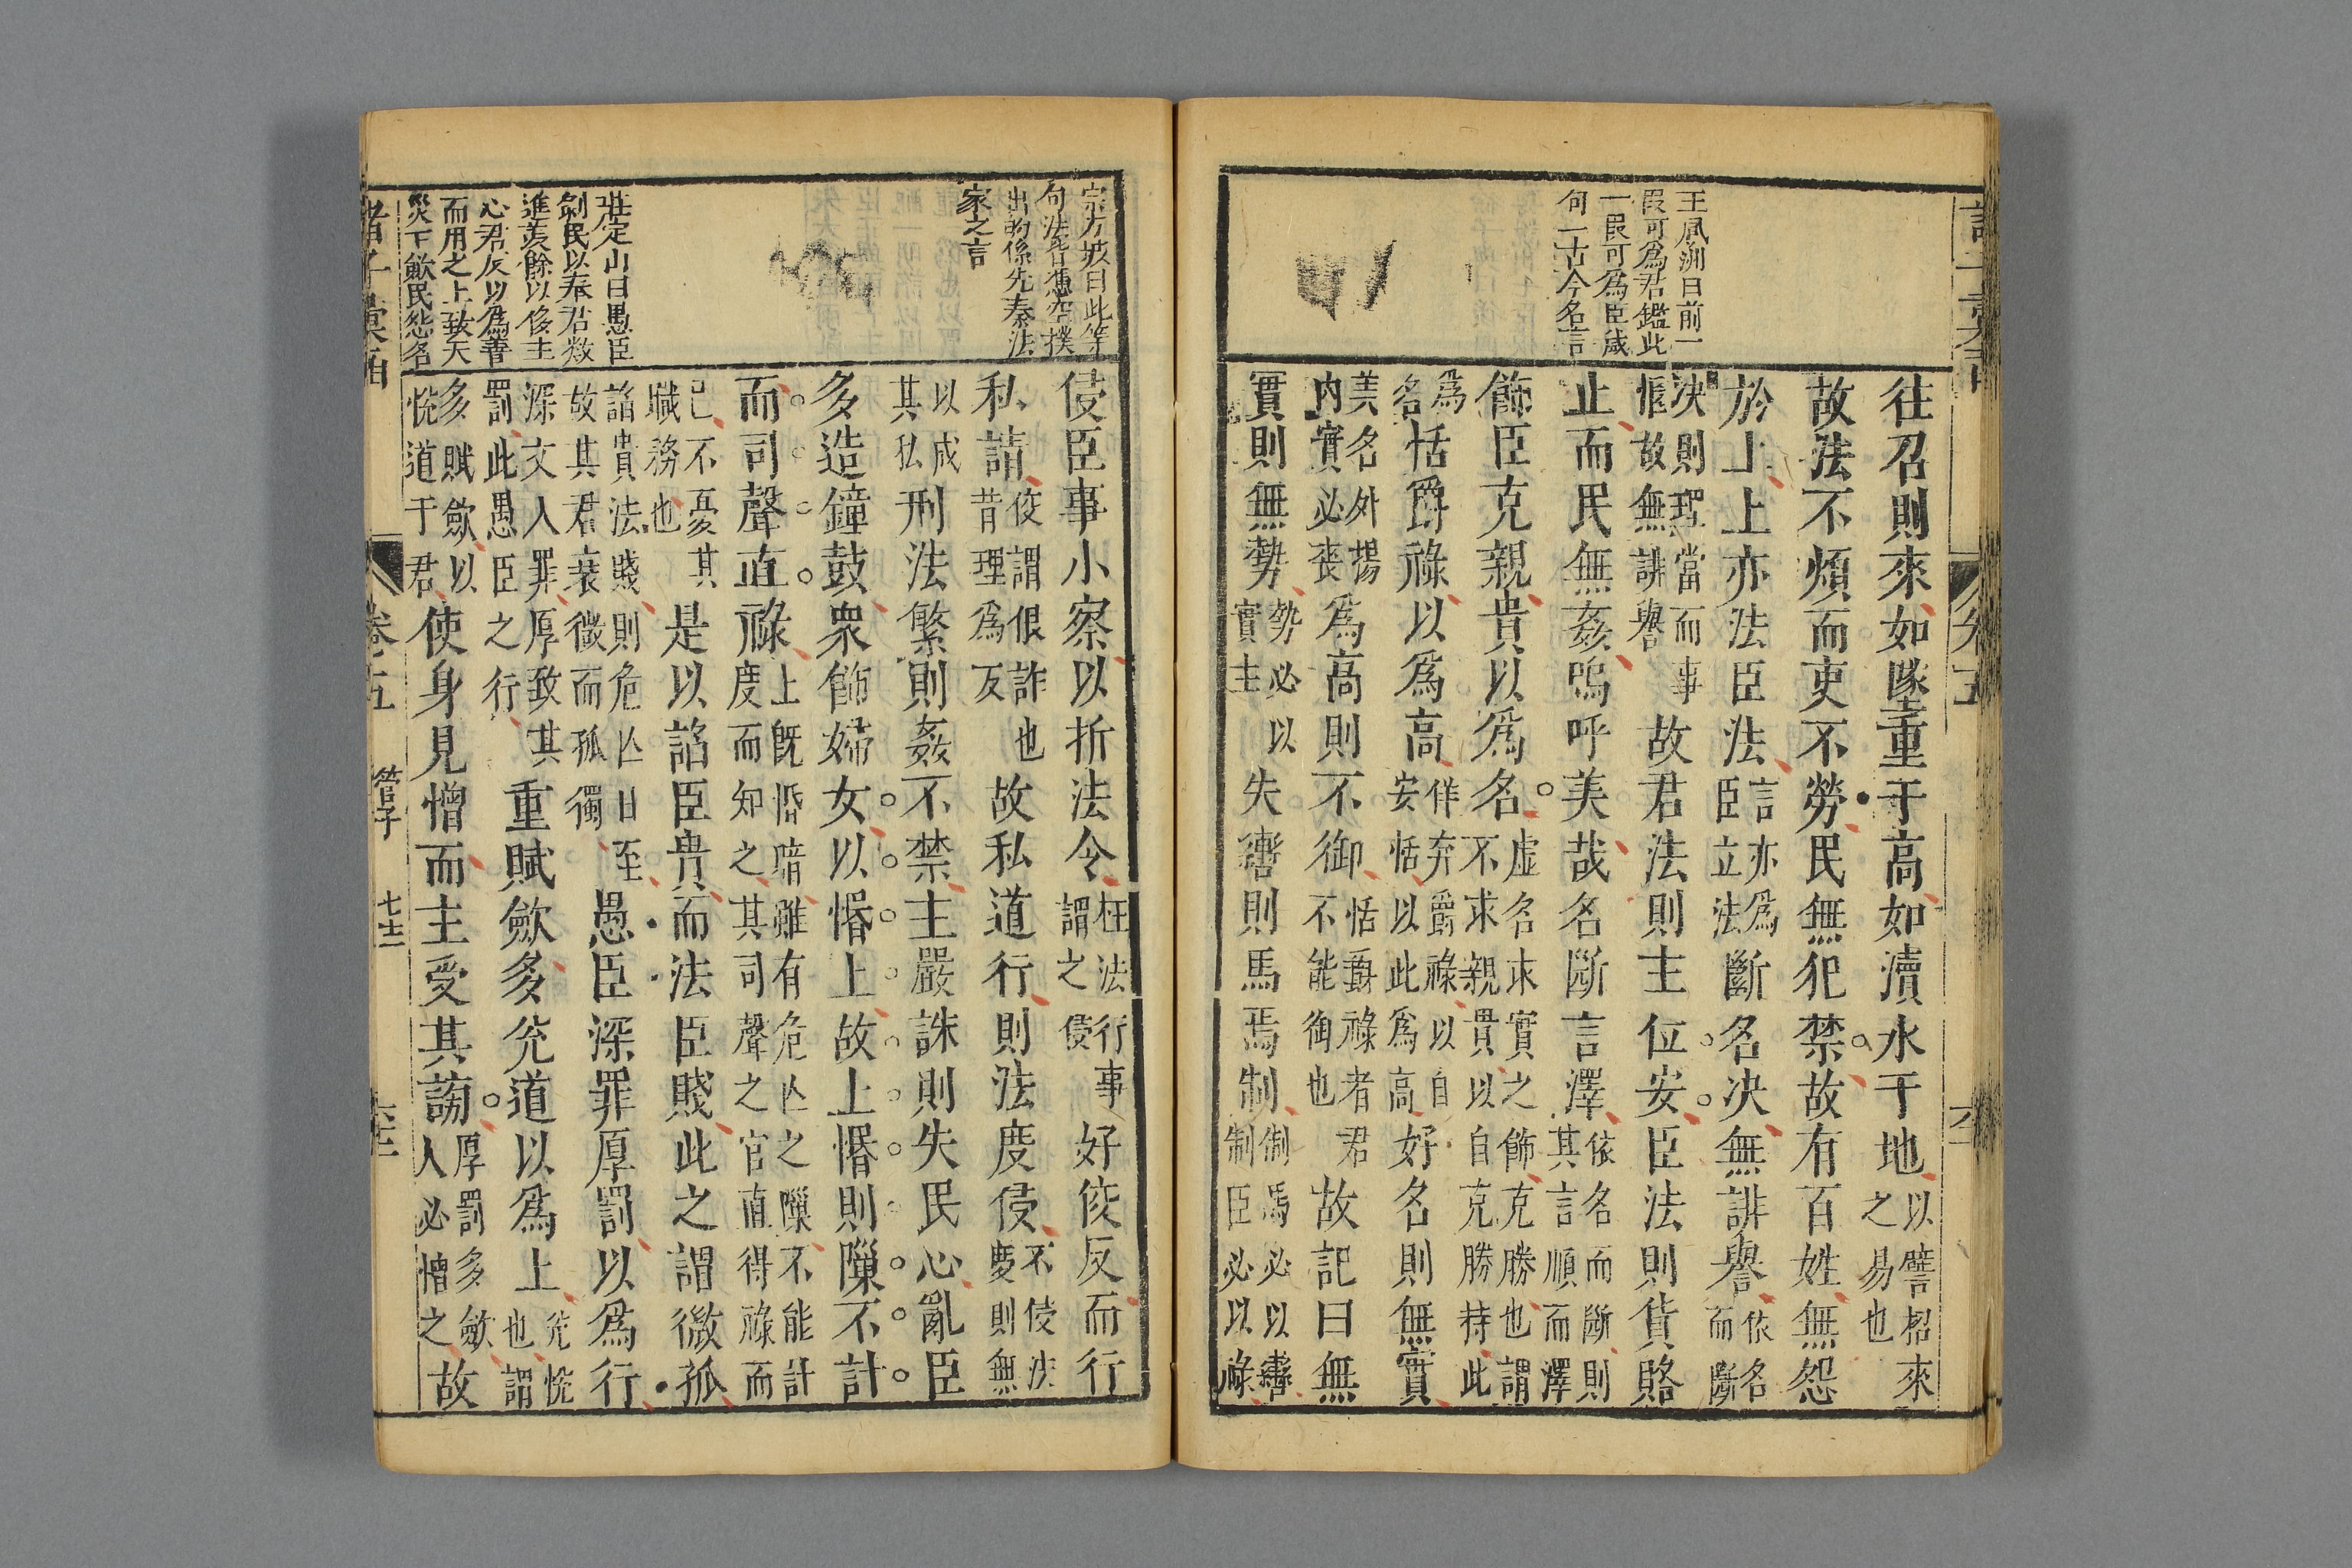 王鳳洲曰前一
叚可為君鑑此
一叚可為臣箴
句一古今名言
往召則來如墜重于高如瀆水于地以譬招來
之易也
故法不煩而吏不勞民無犯禁故有百姓無怨
於上上亦法臣法言亦為
臣立法斷名决無誹譽依名
而斷
决則理當而事
愜故無誹譽故君法則主位安臣法則貨賂
止而民無姦嗚呼美哉名斷言澤依名而斷則
其言順而澤
飾臣克親貴以為名虛名求實之飾克勝也謂
不求親貫以自克勝持此
為
名恬爵祿以為高佯弃爵祿以自
安恬以此為高好名則無實
美名外揚
内實必喪為高則不御恬爵祿者君
不能御也故記曰無
實則無勢勢必以
實主失轡則馬焉制制馬必以轡
制臣必以祿
宗方坡曰此等
句法皆憑空撲
出的係先秦法
家之言
侵臣事小察以折法令枉法行事
謂之侵好佼反而行
私請佼謂佷詐也
昔理為反故私道行則法度侵不侵法
慶則無
以成
其私刑法繁則姦不禁主嚴誅則失民心亂臣
多造鐘鼓衆飾婦女以惛上故上惛則隟不計
而司聲直祿上旣惛暗雖有危亾之隟不能計
度而知之其司聲之官直得祿而
已不憂其
職務也是以諂臣貴而法臣賤此之謂微孤
諂貴法賤則危亾日至
故其君衰微而孤獨愚臣深罪厚罰以為行
深文入罪厚致其
罰此愚臣之行重賦斂多兊道以為上兊恱
也謂
多賦斂以
恱道于君使身見憎而主受其謗厚罰多斂
人必憎之故
莊定山曰愚臣
剝民以奉君数
進羨餘以侈主
心君反以為善
而用之上致天
災下斂民怨名
卷五
管子
七十三